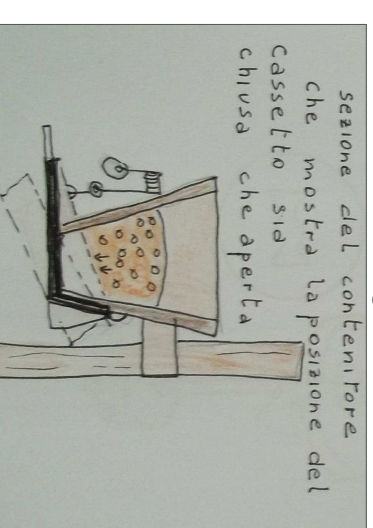 sezione del contenitore
che mostra la posizione del
cassetto sia
chiusa che aperta